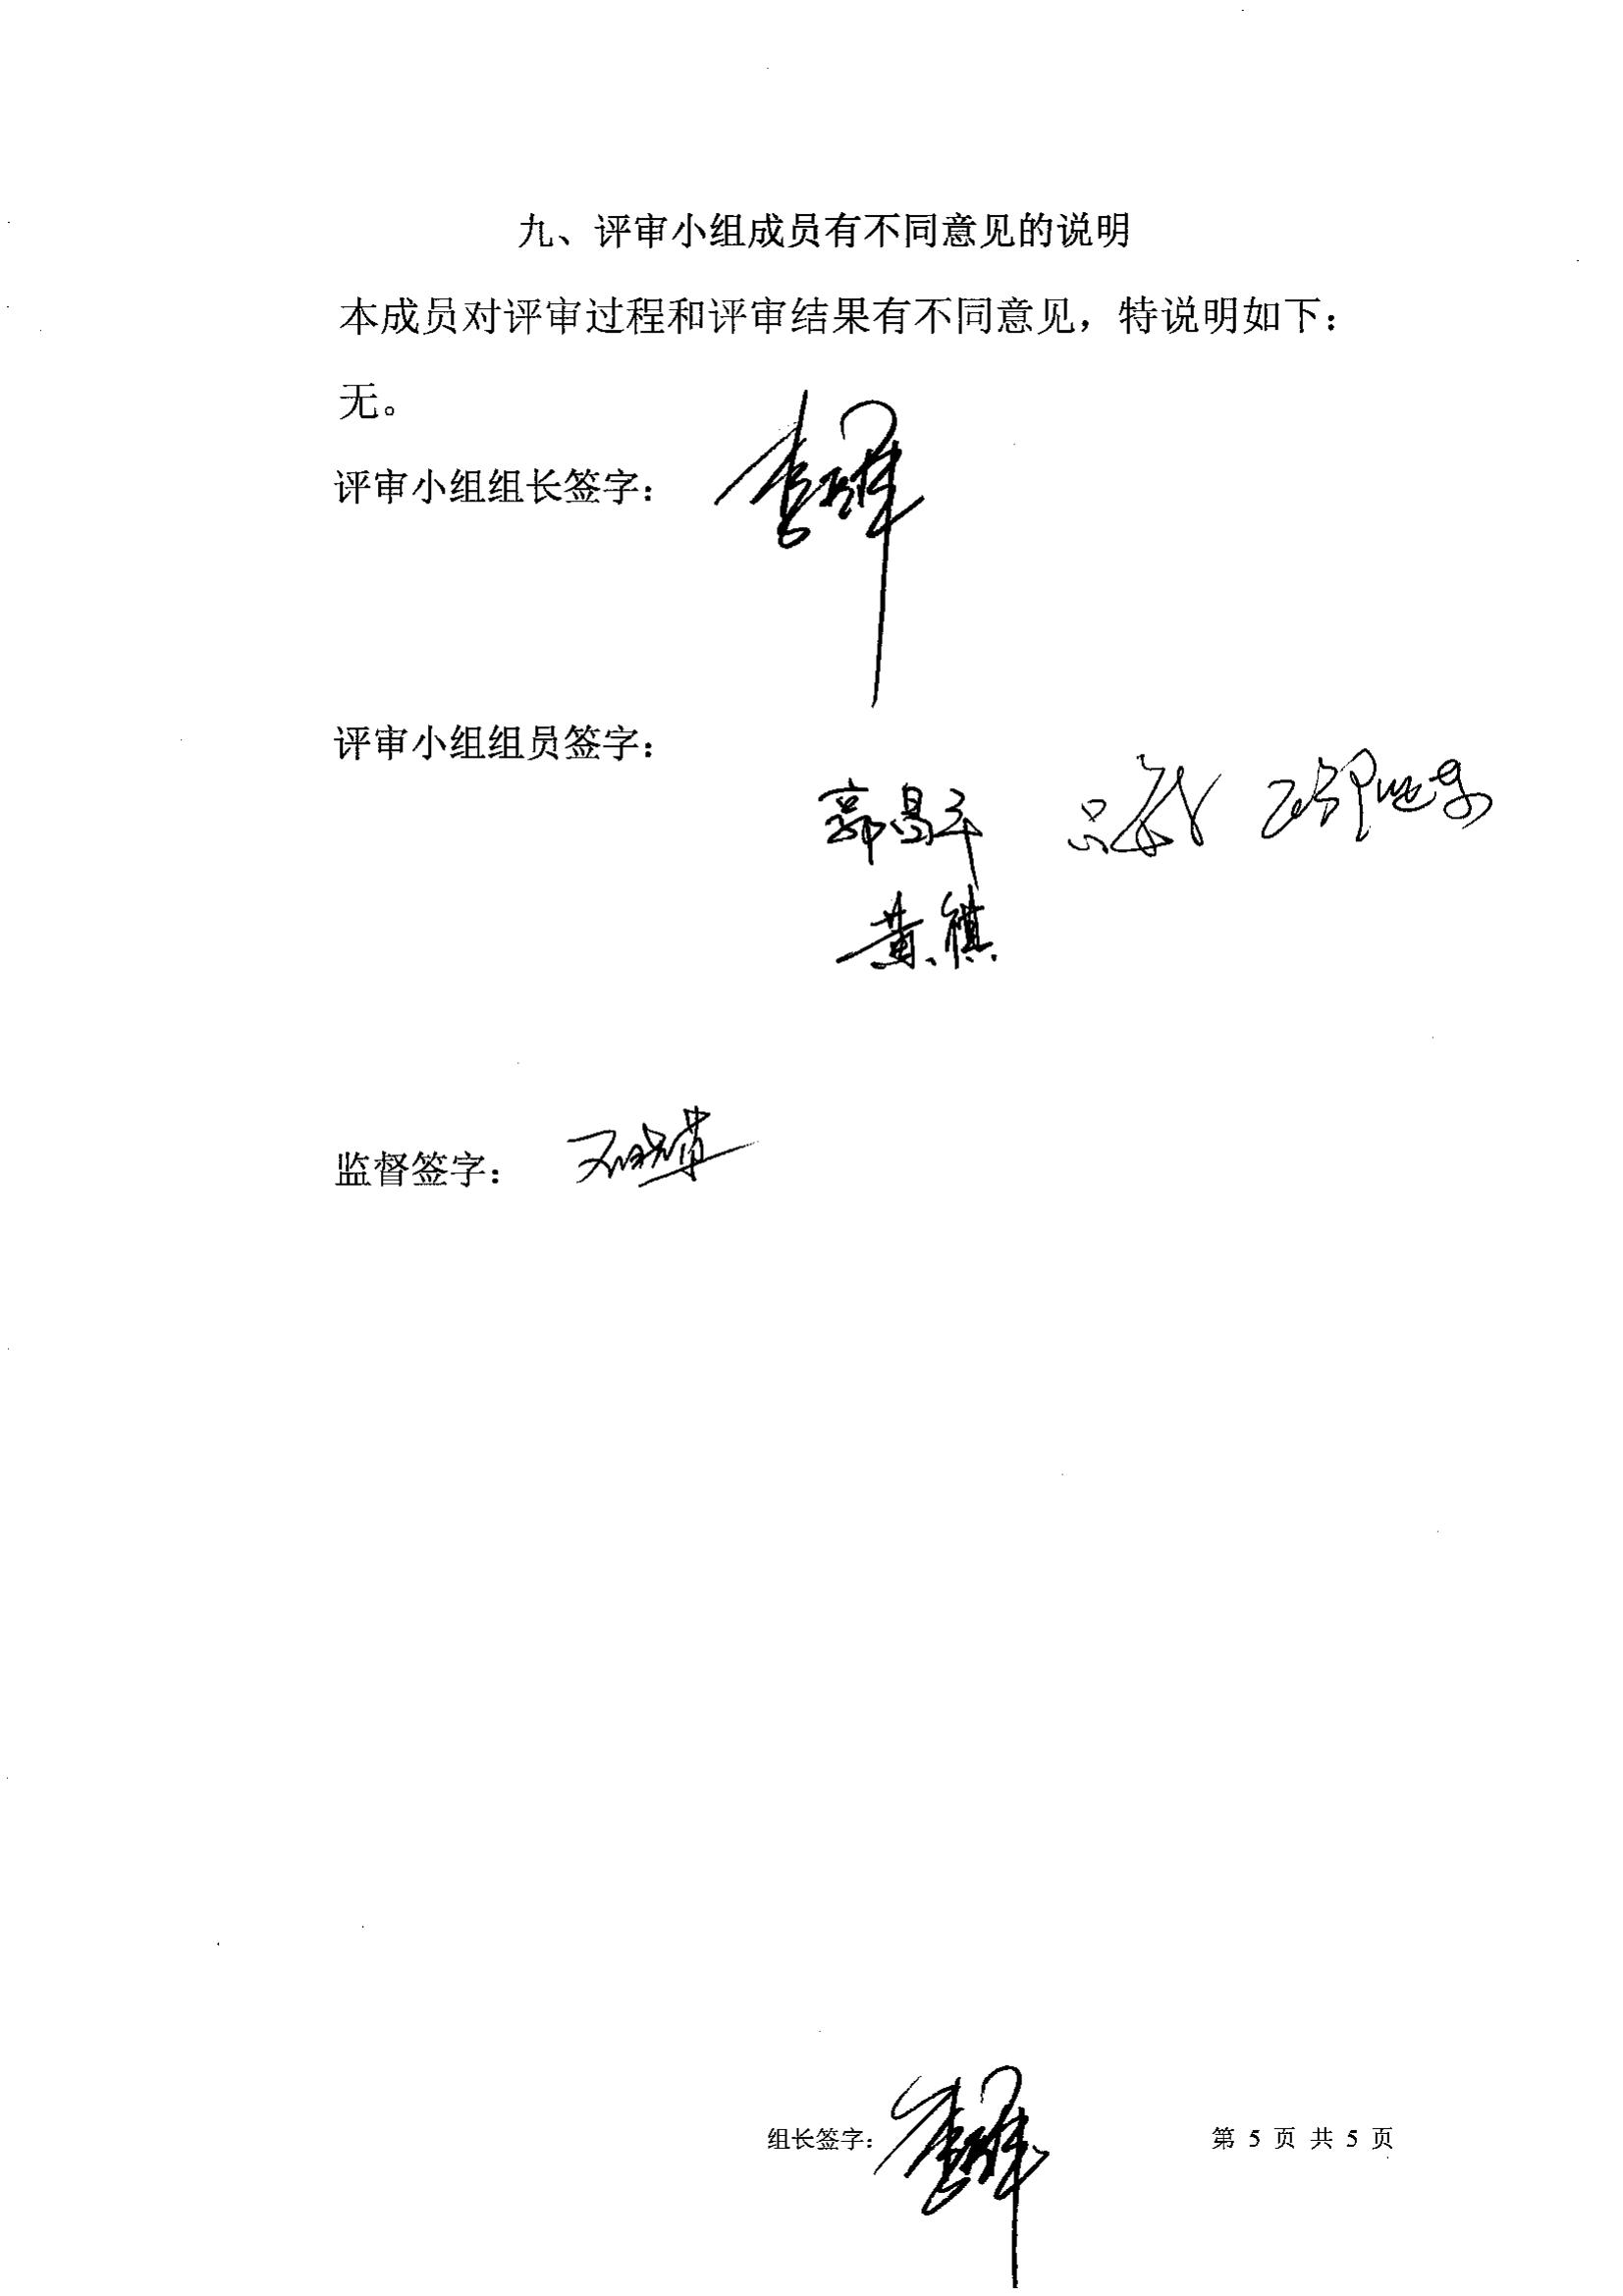 九、评审小组成员有不同意见的说明
本成员对评审过程和评审结果有不同意见，特说明如下：
无。
评审小组组长签字：
评审小组组员签字：
郭昌平
黄祺
监督签字：
组长签字： 第 5 页 共 5 页